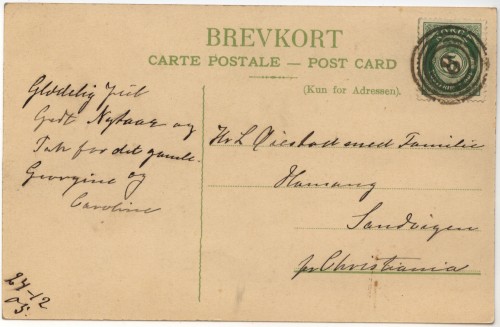 BREVKORT
CARTE POSTALE — POST CARD
(Kun for Adressen).
NORGE
5
Glædelig Jul
Godt Nytaar og
Tak for det gamle
Georgine og
Caroline
24-12
05.
Hr L med Familie
Hamang
Sandvigen
pr Christiania